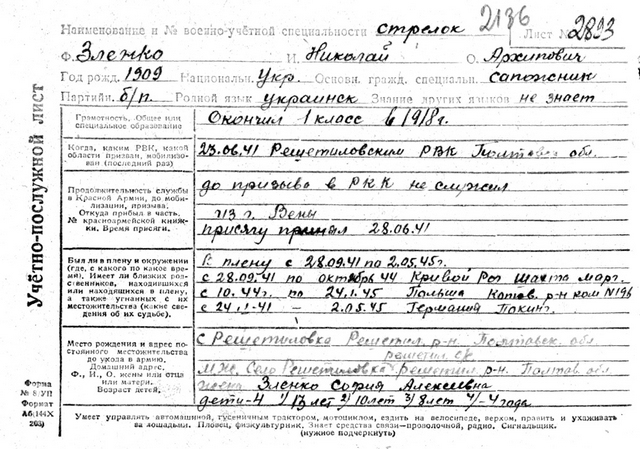 Наименование и № военно-учётной специальности стрелок 2136 Лист № 2893
Ф. Зленко И. Николай О. Архипович
Год рожд. 1909 Национальн. Укр. Основн. гражд. специальн. сапожник
Партийн. б/п. Родной язык украинск Знание других языков не знает
Учётно-послужной лист
Грамотность. Общее или специальное образование
Окончил 1 класс в 1918 г.
Когда, каким РВК, какой области призван, мобилизован (последний раз)
23.06.41 Решетиловским РВК Полтавск обл.
Продолжительность службы в Красной Армии, до мобилизации, призыва. Откуда прибыл в часть. № красноармейской книжки. Время присяги.
до призыва в РКК не служил
из г. Вены
присягу принял 28.06.41
Был ли в плену и окружении (где, с какого по какое время). Имеет ли близких родственников, находившихся или находящихся в плену, а также угнанных с их местожительства (какие сведения об их судьбе).
В плену с 28.09.41 по 2.05.45г.
с 28.09.41 по октябрь 44 Кривой Рог шахта марг.
с 10.44г. по 24.1.45 Польша Катов. р-н ком №196
с 24.1.41 – 2.05.45 Германия
Место рождения и адрес постоянного местожительства до ухода в армию. Домашний адрес. Ф., И., О. жены или отца или матери. Возраст детей.
с Решетиловка Решетил. р-н. Полтавск. обл.
решетил с/с
МЖ. Село Решетиловка Решетил р-н. Полтав обл
жена Зленко София Алексеевна
дети-4 1/13 лет 2/10 лет 3/8 лет 4/-4 года
Форма № 8/УП Формат А6(144Х203)
Умеет управлять автомашиной, гусеничным трактором, мотоциклом, ездить на велосипеде, верхом, править и ухаживать
за лошадьми. Пловец, физкультурник. Знает средства связи—проволочной, радио. Сигнальщик.
(нужное подчеркнуть)